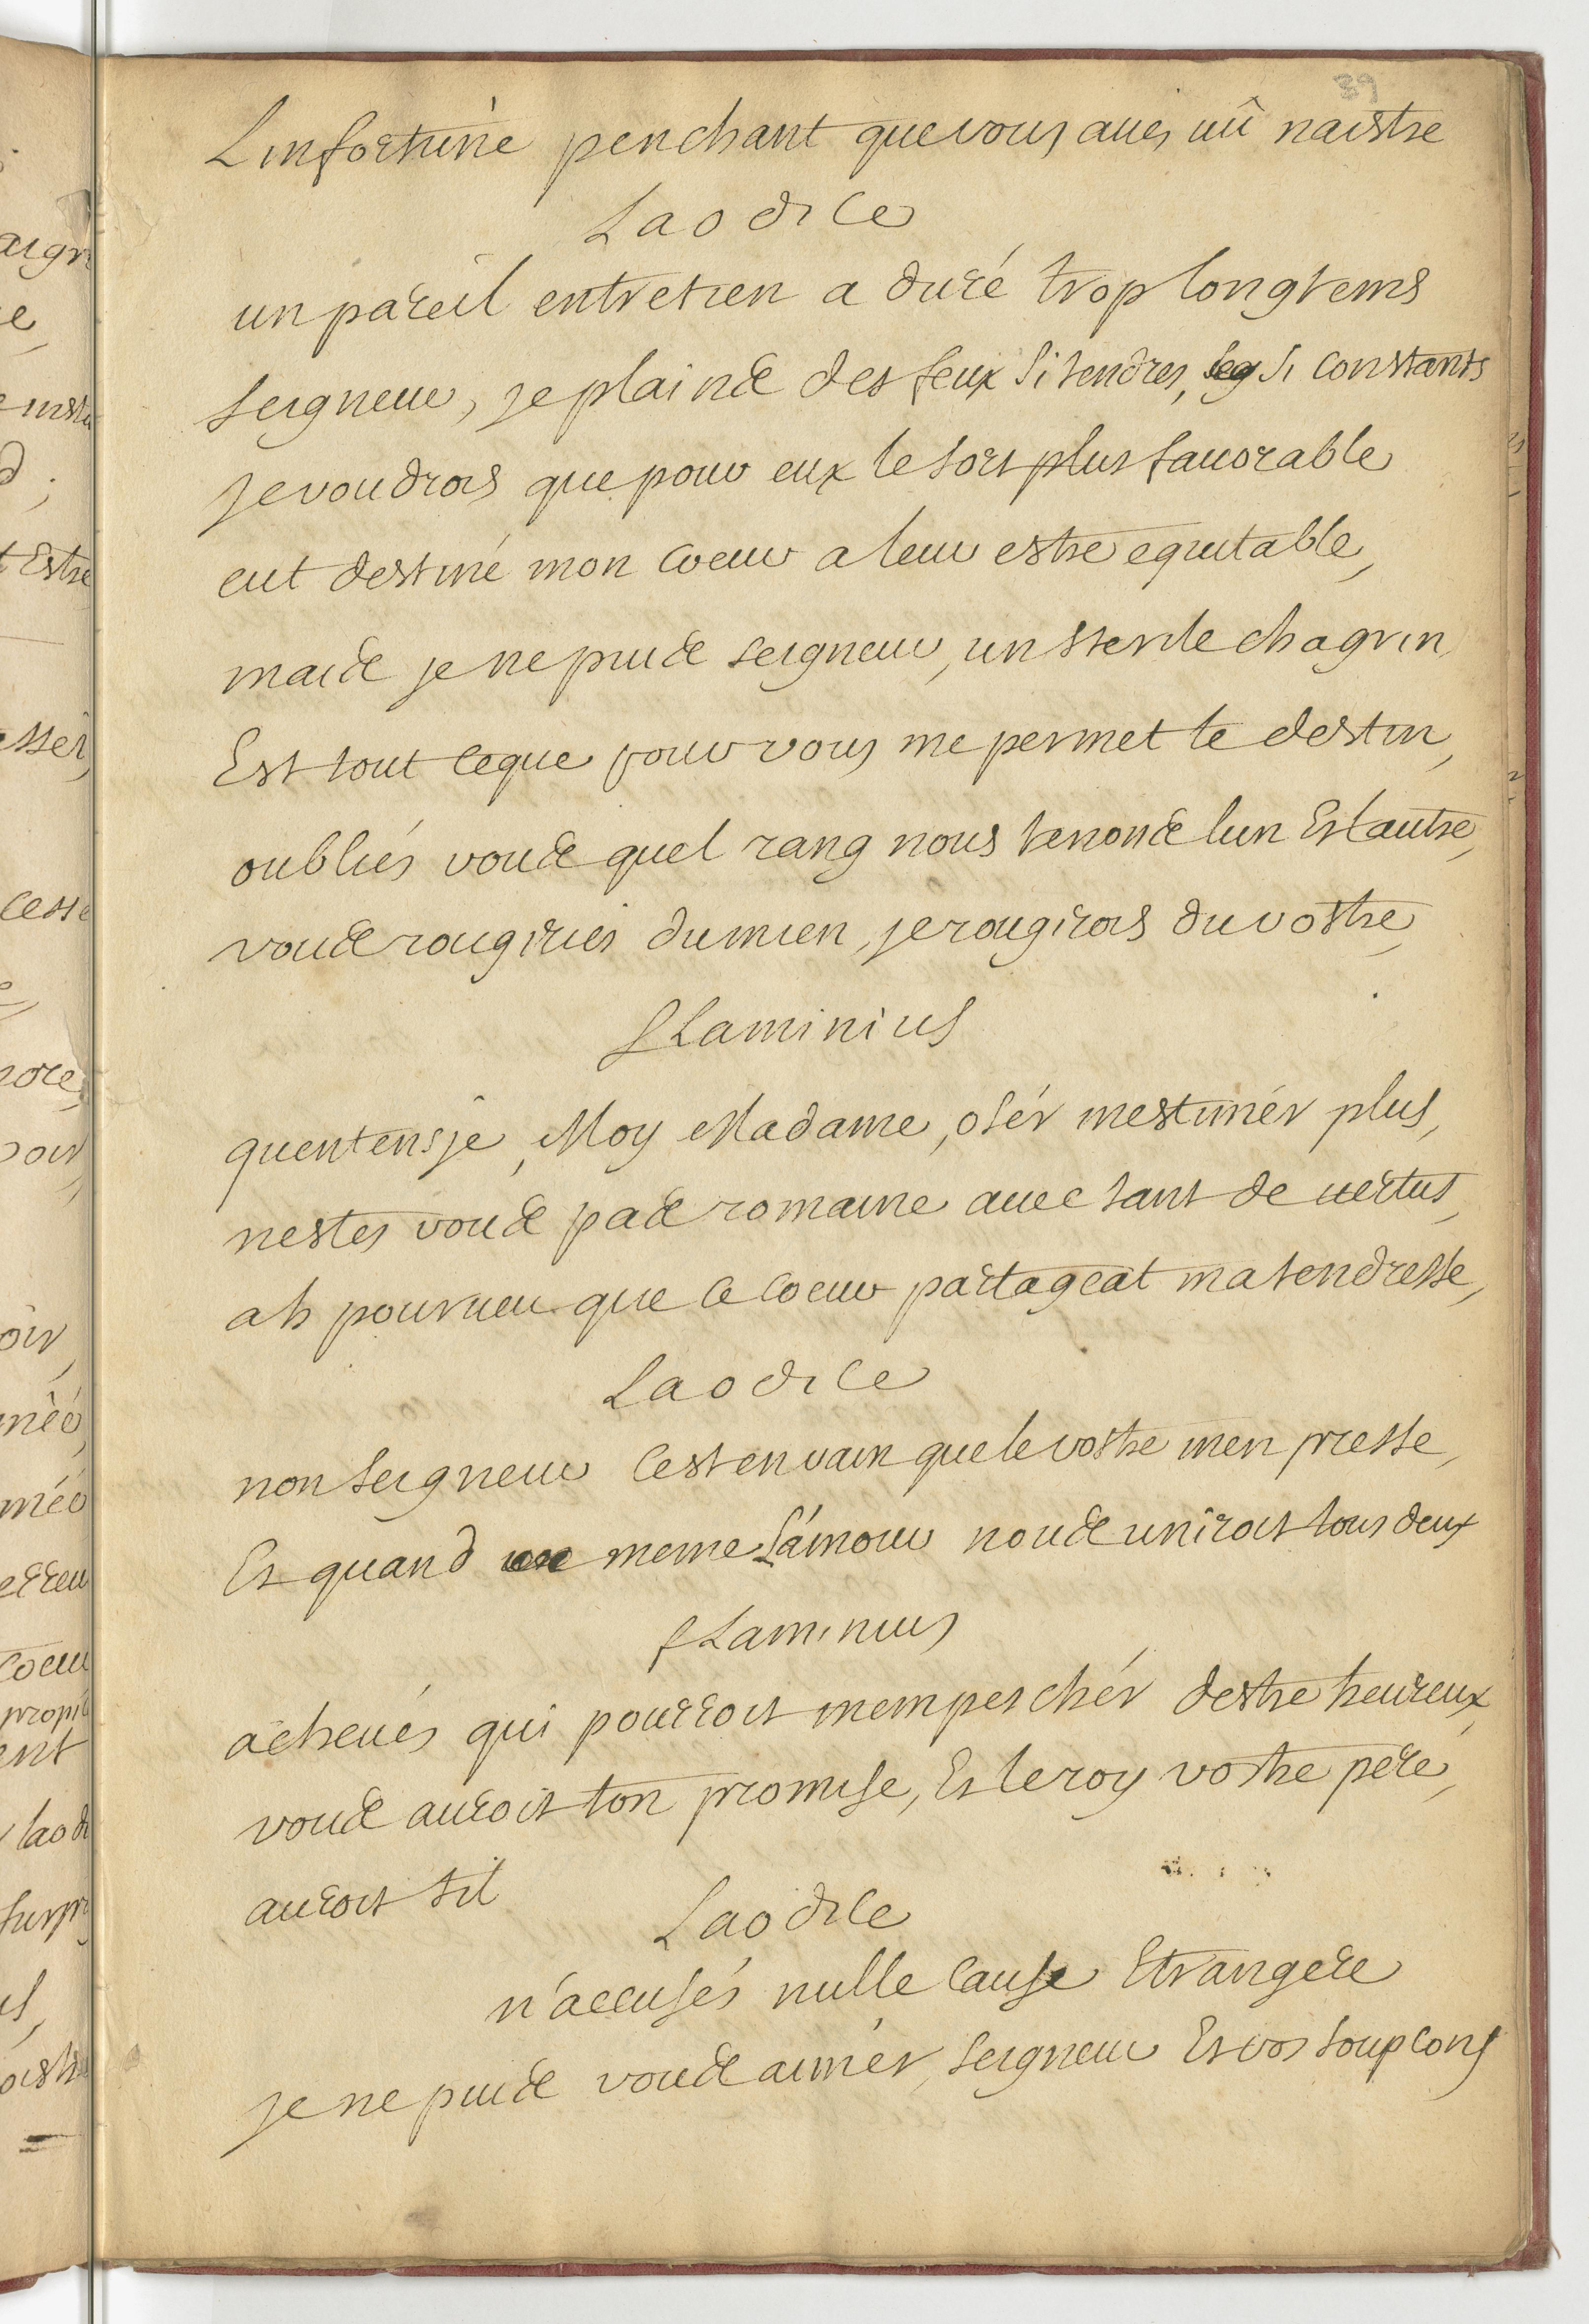 39
Linfortuné penchant que vous aués uû naistre
Laodice
un pareil entretien a duré trop longtems
seigneur, je plains des feux si tendres, si constants
je voudrois que pour eux le sort plus fauorable
eut destiné mon coeur a leur estre equitable,
mais je ne puis seigneur, un sterile chagrin
Est tout ceque pour vous me permet le destin,
oubliés vous quel rang nous tenons lun Et lautre,
vous rougiriés du mien, je rougirois du vostre
flaminius
quentens je, Moy Madame, osér mestimér plus,
nestes vous pas romaine auec tant de uertus,
ah pourueu que ce coeur partageat ma tendresse,
Laodice
non seigneur cest en vain que le vostre men presse,
Et quand meme Lámour nous uniroit tous deux
flaminius
acheués qui pourroit mempeschér destre heureux,
vous auroit ton promise, Et le roy vostre pere,
auroit til
Laodice
n'accusés nulle cause Etrangere
je ne puis vous aimér, seigneur Et vos soupcons